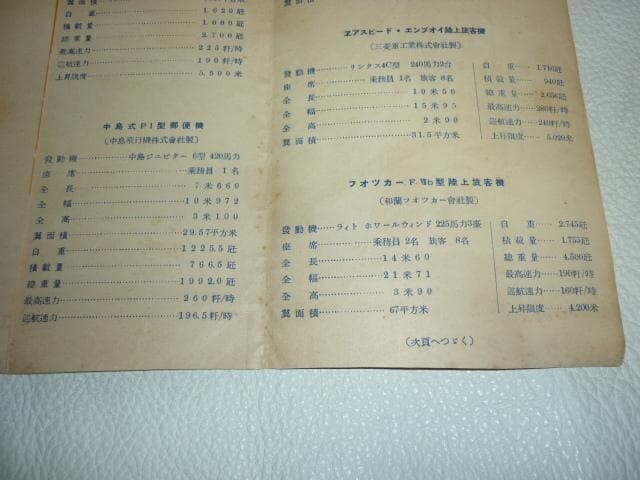 翼面積
自重 1,620瓩
積載量 1,080瓩
總重量 2,700瓩
最高速力 225粁/時
巡航速力 190粁/時
上昇限度 5,500米
中島式P1型郵便機
(中島飛行機株式會社製)
發動機 中島ジユピター 6型 420馬力
座席 乘務員 1名
全長 7米660
全幅 10米972
全高 3米100
翼面積 29.57平方米
自重 1225.5瓩
積載量 766.5瓩
總重量 1992.0瓩
最高速力 260粁/時
巡航速力 196.5粁/時
翼面積
エアスピード・エンヴオイ陸上旅客機
(三菱重工業株式會社製)
發動機 リンクス4C型 240馬力2台
座席 乘務員 1名 旅客 6名
全長 10米50
全幅 15米95
全高 2米90
翼面積 31.5平方米
自重 1,716瓩
積載量 940瓩
總重量 2,656瓩
最高速力 280粁/時
巡航速力 240粁/時
上昇限度 5,020米
フオツカー F.Ⅶb型陸上旅客機
(和蘭フオツカー會社製)
發動機 ライト ホワールウィンド 225馬力3張
座席 乘務員2名 旅客 8名
全長 14米60
全幅 21米71
全高 3米90
翼面積 67平方米
自重 2.745瓩
積載量 1.755瓩
總重量 4.500瓩
最高速力 190粁/時
巡航速力 160粁/時
上昇限度 4.200米
(次頁へつゞく)